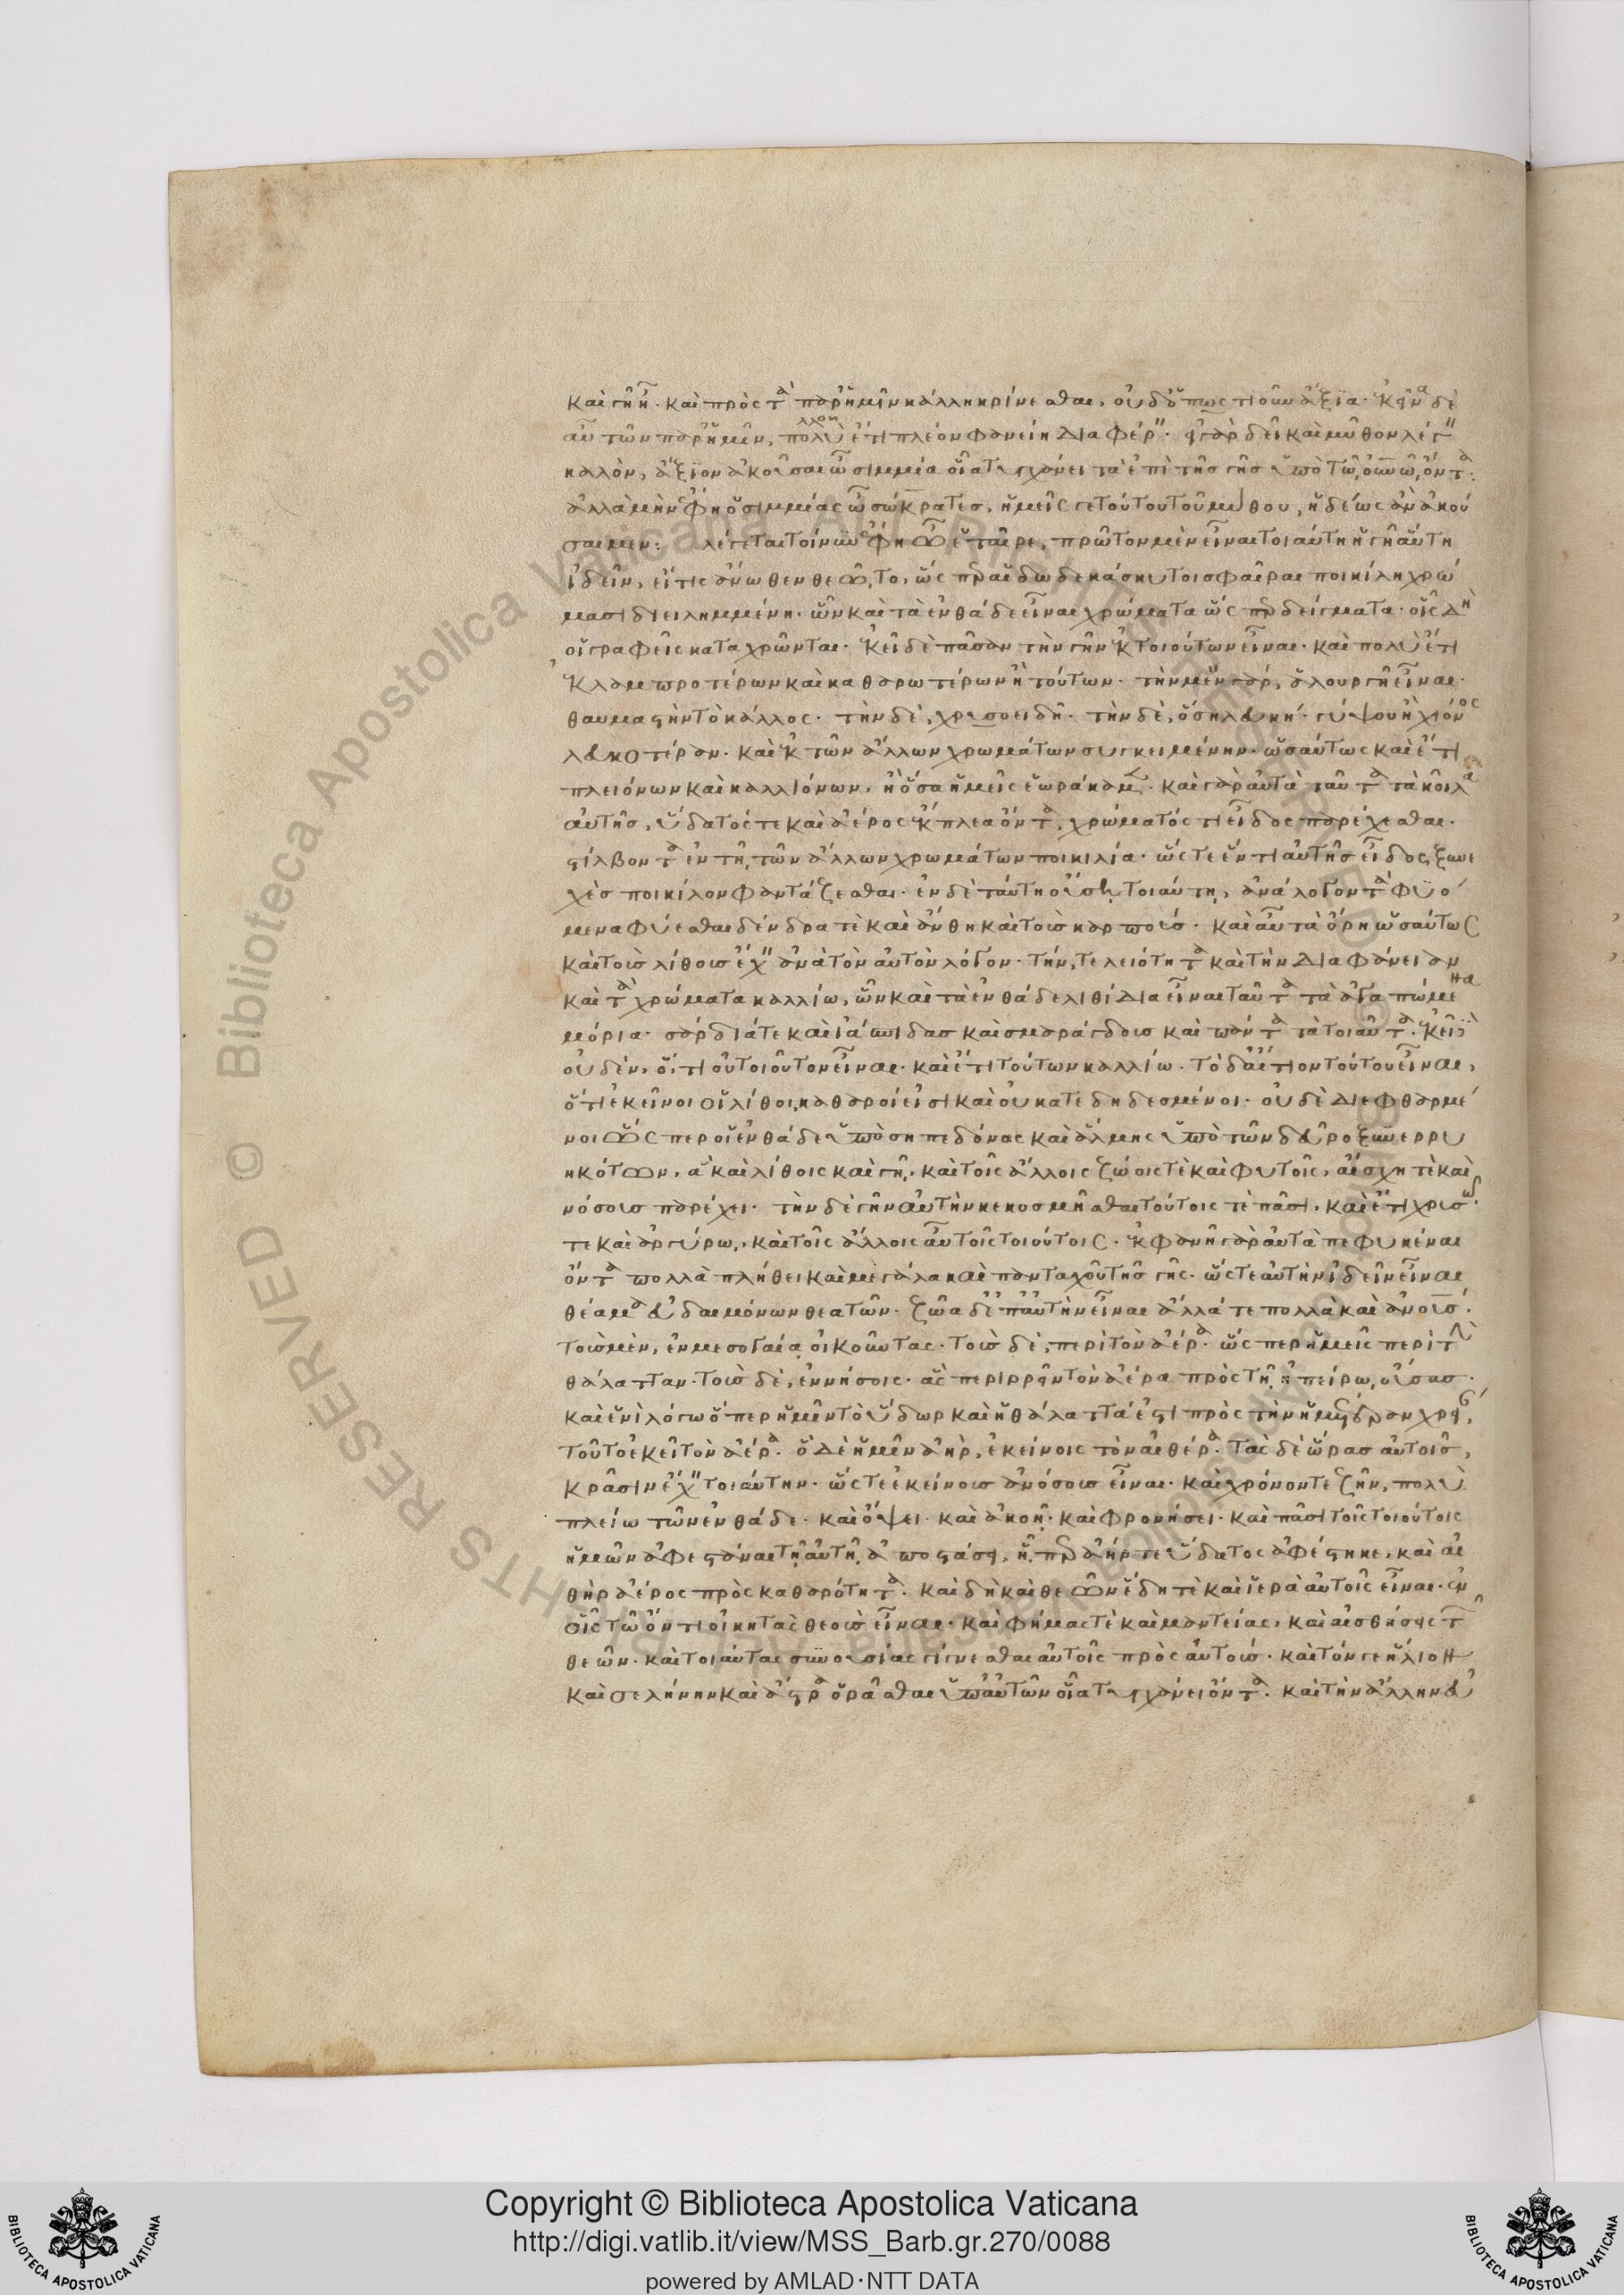 καὶ γῆ ἦ. καὶ πρὸς τὰ παρ' ἡμῖν κάλλη κρίνεσθαι, οὐδ' ὁπωστιοῦν ἄξια. ἐκεῖνα δὲ
αὖ τῶν παρ' ἡμῖν, πολὺ ἔτι πλέον φανείη διαφέρειν. εἰ γὰρ δεῖ καὶ μῦθον λέγειν
καλὸν, ἄξιον ἀκοῦσαι ὦ σιμμία οἷα τυγχάνει τὰ ἐπὶ τῆς γῆς ὑπὸ τῶ οὐνῶ ὄντα.
ἀλλὰ μὴν ἔφη ὁ σιμμίας ὦ σώκρατες, ἡμεῖς γε τούτου τοῦ μύθου, ἡδέως ἂν ἀκού
σαιμεν: λέγεται τοίνυν ἔφη ὦ ἑταῖρε, πρῶτον μὲν εἶναι τοιαύτη ἡ γῆ αὕτη
ἰδεῖν, εἴ τις ἄνωθεν θεῶτο, ὥσπερ αἱ δωδεκάσκυτοι σφαῖραι ποικίλη χρώ
μασι διειλημμένη. ὧν καὶ τὰ ἐνθάδε εἶναι χρώματα ὥσπερ δείγματα. οἷς δὴ
οἱ γραφεῖς καταχρῶνται. ἐκεῖ δὲ πᾶσαν τὴν γῆν ἐκ τοιούτων εἶναι. καὶ πολὺ ἔτι
ἐκ λαμπροτέρων καὶ καθαρωτέρων ἢ τούτων. τὴν μὲν γὰρ, ἁλουργῆ εἶναι.
θαυμαστὴν τὸ κάλλος. τὴν δὲ, χρυσοειδῆ. τὴν δὲ, ὅση λευκή. γύψου ἢ χιόνος
λευκοτέραν. καὶ ἐκ τῶν ἄλλων χρωμάτων συγκειμένην. ὡσαύτως καὶ ἔτι
πλειόνων καὶ καλλιόνων, ἢ ὅσα ἡμεῖς ἑωράκαμεν. καὶ γὰρ αὐτὰ ταῦτα τὰ κοῖλα
αὐτῆς, ὕδατός τε καὶ ἀέρος ἔκπλεα ὄντα, χρώματός τι εἶδος παρέχεσθαι.
στίλβοντα ἐν τῆ τῶν ἄλλων χρωμάτων ποικιλία. ὥστε ἕν τι αὐτῆς εἶδος ξυνε
χὲς ποικίλον φαντάζεσθαι. ἐν δὲ ταύτη οὔση τοιαύτη, ἀνάλογον τὰ φυό
μενα φύεσθαι δένδρα τὲ καὶ ἄνθη καὶ τοὺς καρπούς. καὶ αὖ τὰ ὄρη ὡσαύτως
καὶ τοὺς λίθους ἔχειν ἀνὰ τὸν αὐτὸν λόγον. τήν, τελειότητα καὶ τὴν διαφάνειαν
καὶ τὰ χρώματα καλλίω, ὧν καὶ τὰ ἐνθάδε λιθίδια εἶναι ταῦτα τὰ ἀγαπώμενα
μόρια. σάρδιά τε καὶ ἰάσπιδας καὶ σμαράγδους καὶ πάντα τὰ τοιαῦτα. ἐκεῖ δὲ
οὐδὲν, ὅ, τι οὐ τοιοῦτον εἶναι. καὶ ἔτι τούτων καλλίω. τὸ δ' αἴτιον τούτου εἶναι,
ὅτι ἐκεῖνοι οἱ λίθοι, καθαροί εἰσι καὶ οὐ κατεδηδεσμένοι. οὐδὲ διεφθαρμέ
νοι ὥσπερ οἱ ἐνθάδε ὑπὸ σηπεδόνας καὶ ἅλμης ὑπὸ τῶν δεῦρο ξυνερρυ
ηκότων, ἃ καὶ λίθοις καὶ γῆ, καὶ τοῖς ἄλλοις ζώοις τὲ καὶ φυτοῖς, αἴσχη τὲ καὶ
νόσους παρέχει. τὴν δὲ γῆν αὐτὴν κεκοσμῆσθαι τούτοις τὲ πᾶσι, καὶ ἔτι χρυσῶ
τε καὶ ἀργύρω, καὶ τοῖς ἄλλοις αὖ τοῖς τοιούτοις. ἐκφανῆ γὰρ αὐτὰ πεφυκέναι
ὄντα πολλὰ πλήθει καὶ μεγάλα καὶ πανταχοῦ τῆς γῆς. ὥστε αὐτὴν ἰδεῖν εἶναι
θέαμα εὐδαιμόνων θεατῶν. ζῶα δ' ἐπ' αὐτὴν εἶναι ἄλλά τε πολλὰ καὶ ἀνους.
τοὺς μὲν, ἐν μεσογαία οἰκοῦντας. τοὺς δὲ, περὶ τὸν ἀέρα. ὥσπερ ἡμεῖς περὶ τὴν
θάλατταν. τοὺς δὲ, ἐν νήσοις. ἃς περιρρεῖν τὸν ἀέρα πρὸς τῆ ἠπείρω οὔσας.
καὶ ἑνὶ λόγω ὅπερ ἡμῖν τὸ ὕδωρ καὶ ἡ θάλαττά ἐστι πρὸς τὴν ἡμετέραν χρείαν,
τοῦτο ἐκεῖ τὸν ἀέρα. ὃ δὲ ἡμῖν ἀὴρ, ἐκείνοις τὸν αἰθέρα. τὰς δὲ ὥρας αὐτοῖς,
κρᾶσιν ἔχειν τοιαύτην. ὥστε ἐκείνους ἀνόσους εἶναι. καὶ χρόνον τε ζῆν, πολὺ
πλείω τῶν ἐνθάδε. καὶ ὄψει. καὶ ἀκοῆ. καὶ φρονήσει. καὶ πᾶσι τοῖς τοιούτοις
ἡμῶν ἀφεστάναι τῆ αὐτῆ ἀποστάσει, ἧπερ ἀήρ τε ὕδατος ἀφέστηκε, καὶ αἰ
θὴρ ἀέρος πρὸς καθαρότητα. καὶ δὴ καὶ θεῶν ἕδη τὲ καὶ ἱερὰ αὐτοῖς εἶναι. ἐν
οἷς τῶ ὄντι οἰκητὰς θεοὺς εἶναι. καὶ φήμας τὲ καὶ μαντείας, καὶ αἰσθήσεις τῶν
θεῶν. καὶ τοιαύτας συνουσίας γίγνεσθαι αὐτοῖς πρὸς αὐτούς. καὶ τόν γε ἥλιον
καὶ σελήνην καὶ ἄστρα ὁρᾶσθαι ὑπ' αὐτῶν οἷα τυγχάνει ὄντα. καὶ τὴν ἄλλην εὐ
Copyright © Biblioteca Apostolica Vaticana
http://digi.vatlib.it/view/MSS_Barb.gr.270/0088
powered by AMLAD·NTT DATA